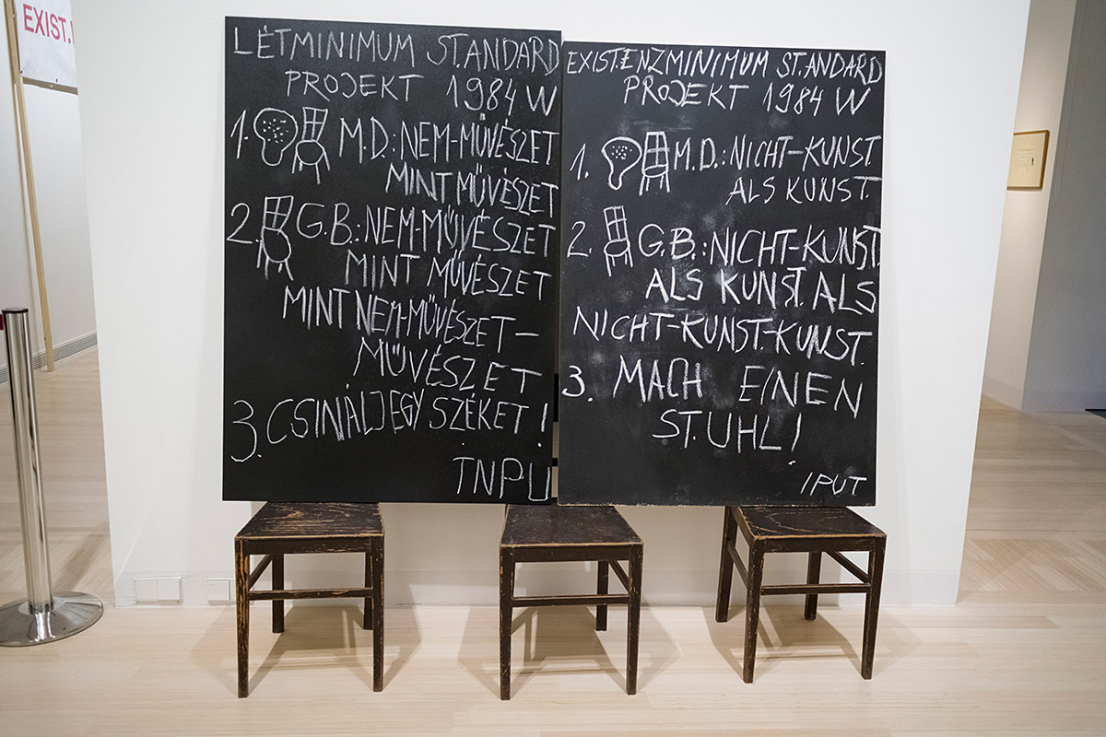 EXIST.
LÉTMINIMUM ST.ANDARD
PROJEKT 1984 W
1. M.D.: NEM-MŰVÉSZET
MINT MŰVÉSZET
2. G.B.: NEM-MŰVÉSZET
MINT MŰVÉSZET
MINT NEM-MŰVÉSZET-
MŰVÉSZET
3. CSINÁLJ EGY SZÉKET!
TNPU
EXIST.ENZMINIMUM ST.ANDARD
PROJEKT 1984 W
1. M.D.: NICHT-KUNST
ALS KUNST.
2. G.B.: NICHT-KUNST
ALS KUNST. ALS
NICHT-KUNST-KUNST.
3. MACH EINEN
ST.UHL!
IPUT